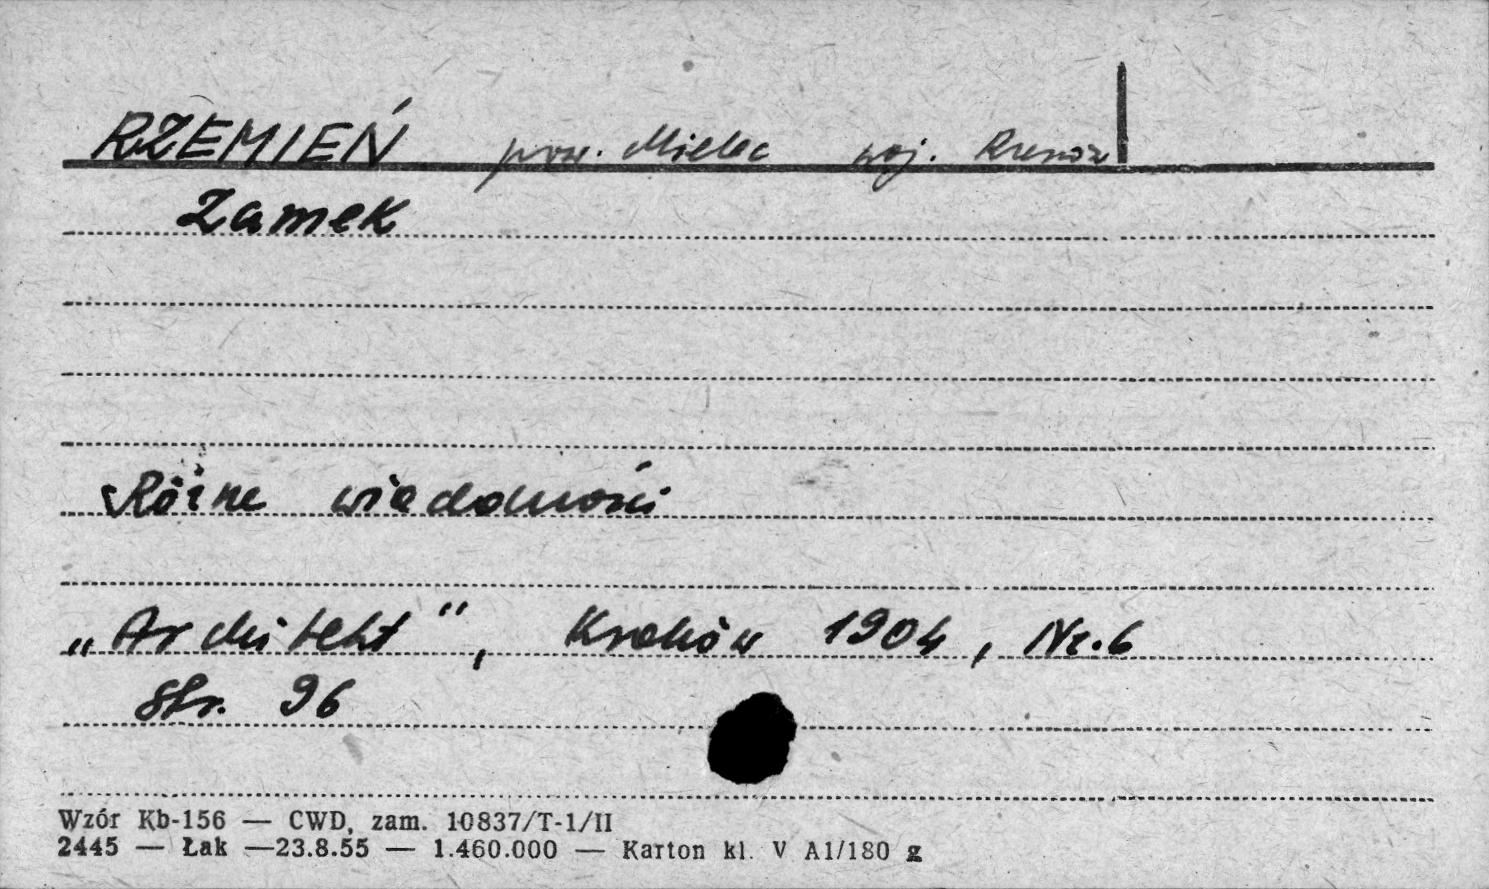 RZEMIEŃ pow. Mielec woj. Rzeszów
Zamek
Różne wiadomości
„Architekt", Kraków 1904, Nr. 6
str. 96
Wzór Kb-156 — CWD, zam. 10837/T-1/II
2445 — Łak —23.8.55 — 1.460.000 — Karton kl. V A1/180 g